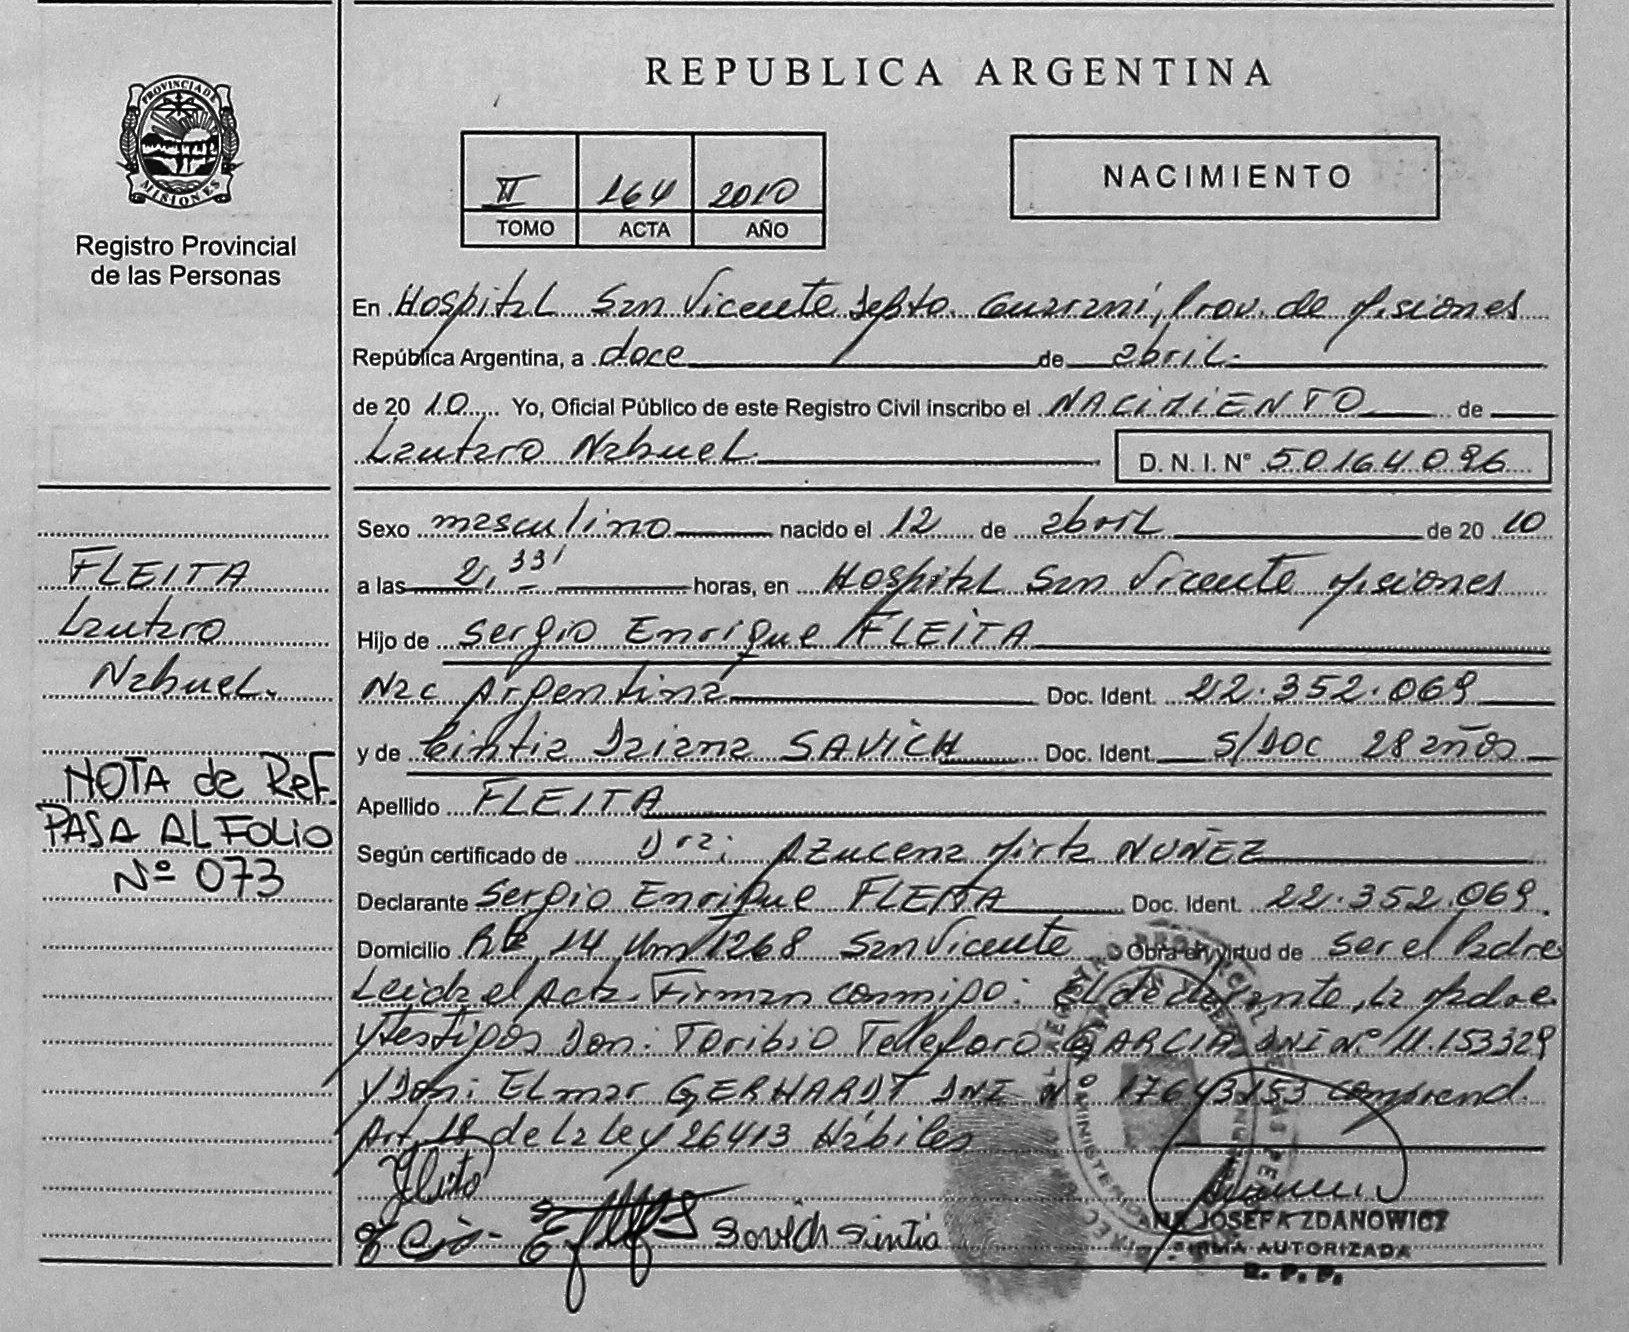 PROVINCIA DE
MISIONES
Registro Provincial
de las Personas
REPUBLICA ARGENTINA
II 164 2010
TOMO ACTA AÑO
NACIMIENTO
En Hospital San Vicente Depto. Guaraní, Prov. de Misiones
República Argentina, a doce de abril.
de 2010 Yo, Oficial Público de este Registro Civil inscribo el NACIMIENTO de
Lautaro Nahuel. D. N. I. N° 50164096
Sexo masculino nacido el 12 de abril de 2010
a las 2,33' horas, en Hospital San Vicente Misiones
Hijo de Sergio Enrique FLEITA
Nac Argentina Doc. Ident. 22.352.069
y de Cintia Daiana SAVICH Doc. Ident. S/DOC 28 años
Apellido FLEITA
Según certificado de Dra: Azucena Mirta NUÑEZ
Declarante Sergio Enrique FLEITA Doc. Ident. 22.352.069.
Domicilio Rta 14 Km 1268 San Vicente Obra en virtud de ser el Padre
Leida el Acta. Firman conmigo: El declarante, la Madre
y testigos Don: Toribio Teleforo GARCIA DNI N° 11.153329
y Don: Elmar GERHARDT DNI N° 17643153 comprend.
Art. 18 de la Ley 26413 Hábiles
FLEITA
Lautaro
Nahuel.
NOTA de Ref.
PASA AL FOLIO
Nº 073
Fleita
Savich Sintia
ANA JOSEFA ZDANOWICZ
FIRMA AUTORIZADA
R. P. P.